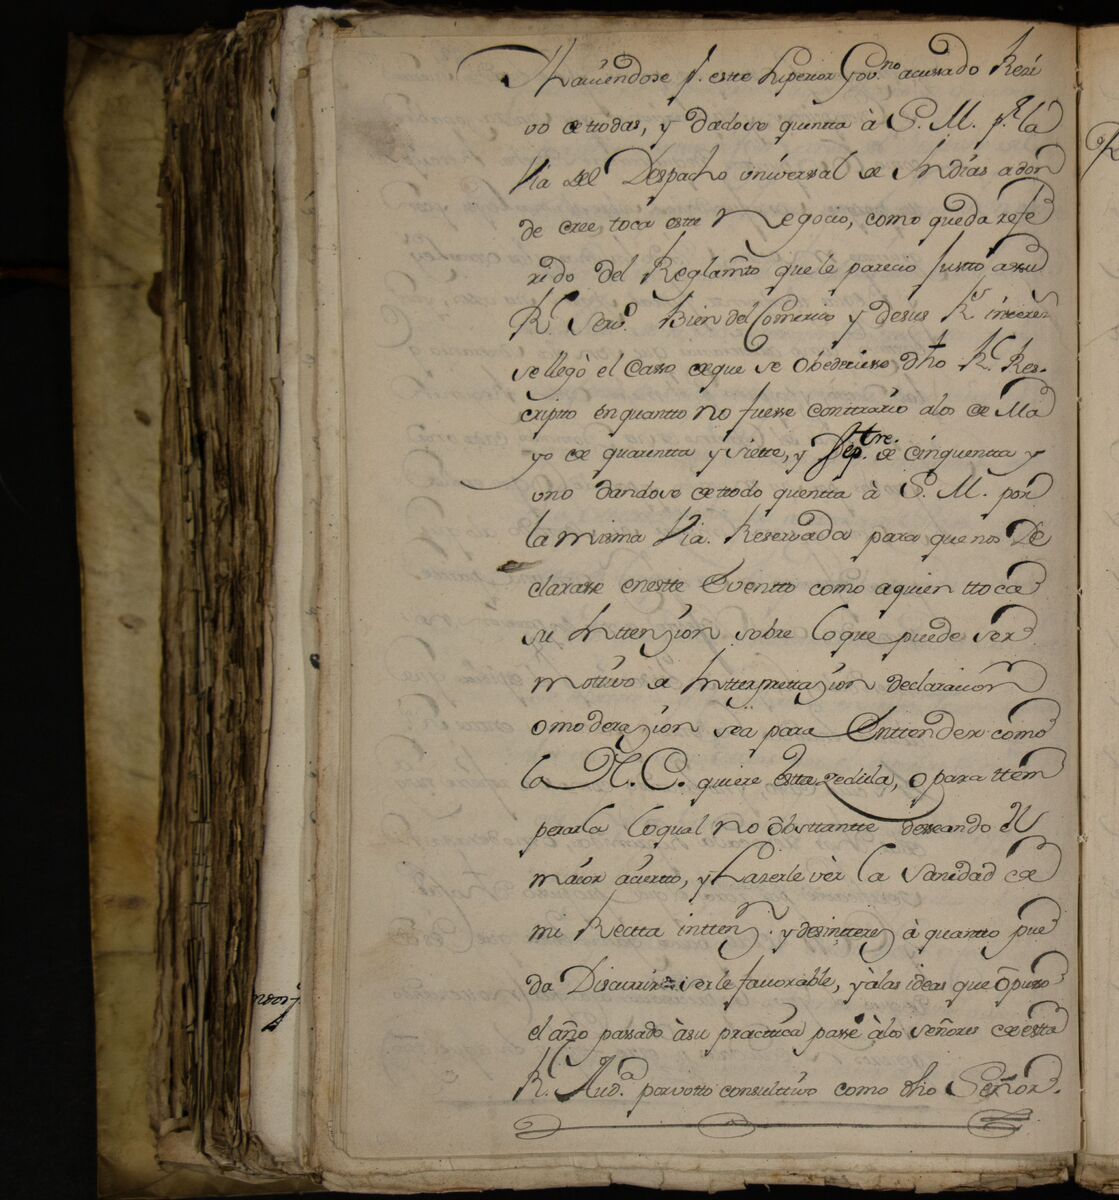 Haciendose p.r este Superior Gov.no acusado Reci
vo de ttodas, y dadose quentta à S. M. p.r la
Via del Despacho universal de Indias adon
de cree toca este Negocio, como queda refe
rido del Reglam.to que le parecio Justto a su
R.l Serv.o Bien del Comercio y de sus R.s intteres
se llegò el Casso de que se Obedeciesse dho R.l Res-
cripto en quantto no fuesse conttrario alos de Ma
yo de quarentta y siette, y Sep.tre de cinquentta y
uno dandose de ttodo quentta à S. M. por
la misma Via Reservada para que nos De
clarasse en estte Eventto como a quien ttoca
su Inttenzion sobre lo que puede ser
mottivo de Intterprettazion declaracion
o moderazion sea para Enttender como
la N. C. quiere estta zedula, o para ttem
perarla lo qual no obsttantte desseando el
maior aciertto, y hazerle vèr la Sanidad de
mi Rectta intten.z y desintteres à quantto pue
da Discurrir serle favorable, y à las ideas que opuso
el año passado à su practtica passè à los señores de estta
R.l Aud.a por votto consulttivo como dho Señor.